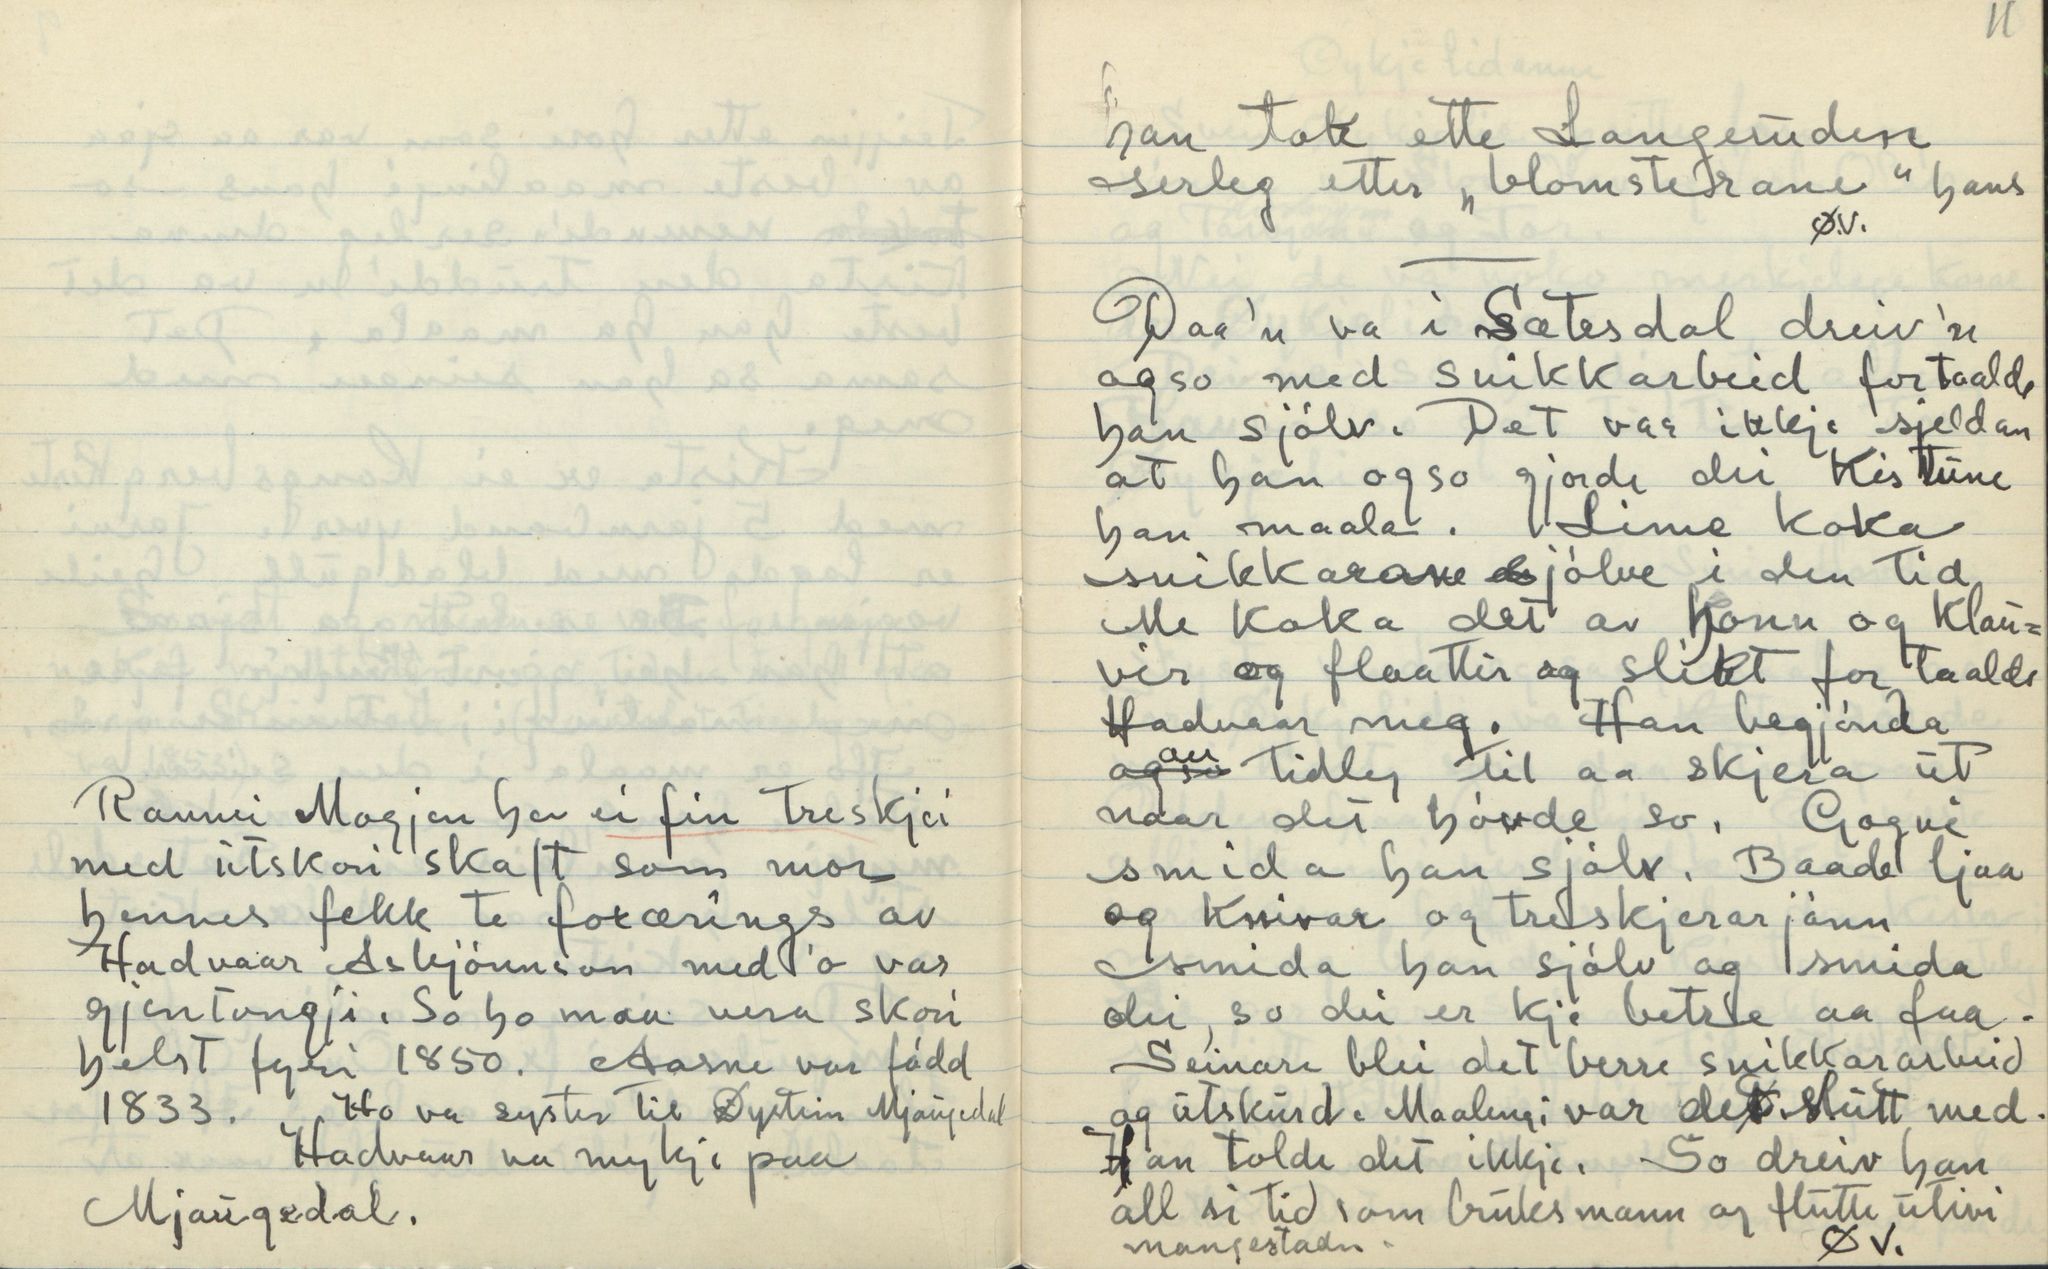 Rannei Mogjen har ei fin treskjei
med útskori skaft som mor
hennes fekk te forærings av
Hadvaar Askjónnson med 'o var
gjentongji. So ho maa vera skori
helst fyri 1850. Aasne var fódd
1833. Ho va syster til Øystein Mjaugedal
Hadvaar va mykji paa
Mjaugedal.
11
han tok ette Langeruden
serleg etter „blomsterane" hans
Ø.V.
Daa'n va i Sætesdal dreiv'n
ogso med snikkarbeid fortaalde
han sjólv. Det var ikkje sjeldan
at han ogso gjorde dei Kistune
han maala. Lime koka
snikkarane sjólve i den tid
Me koka det av honn og klau=
vir og flaattir og slikt for taalde
Hadvaar meg. Han begjónda
au tidleg til aa skjera út
naar det hóvde so. Gogni
smida han sjólv. Baade ljaa
og knivar og treskjerarjánn
smida han sjólv og smida
dei, so dei er kje betrie aa faa.
Seinare blei det berre snikkararbeid
og útskúrd. Maalingi var det slútt med.
Han tolde det ikkje. So dreiv han
all si tid som brúksmann og flútte útivi
mangestadn.
Ø V.